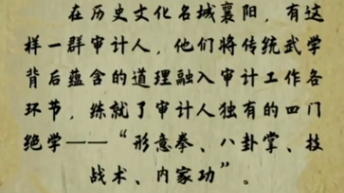 在历史文化名城襄阳，有这
样一群审计人，他们将传统武学
背后蕴含的道理融入审计工作各
环节，练就了审计人独有的四门
绝学——“形意拳、八卦掌、技
战术、内家功”。